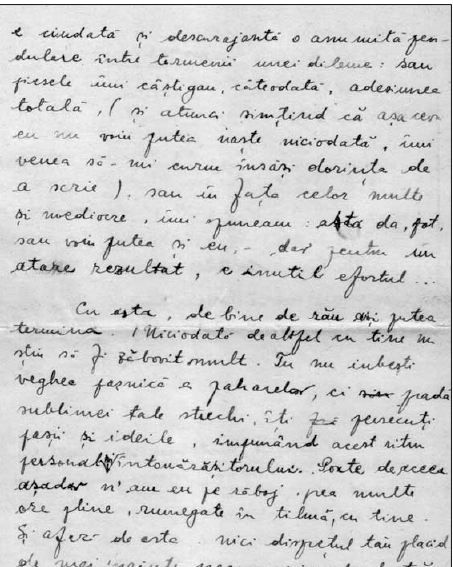 e ciudată și descurajantă o anumită pen-
dulare între termenii unei dileme: sau
piesele îmi câștigau, câteodată, adesiunea
totală, (și atunci simțind că așa ceva
eu nu voiu putea naște niciodată, îmi
venea să-mi curm însăși dorința de
a scrie), sau în fața celor multe
și mediocre, îmi spuneam: asta da, pot,
sau voiu putea și eu, - dar pentru un
atare rezultat, e inutil efortul...
Cu asta, de bine de rău ași putea
termina. (Niciodată de altfel cu tine nu
știu să fi zăbovit mult. Tu nu iubești
veghea pașnică a paharelor, ci pradă
sublimei tale strechi, îți persecuți
pașii și ideile, impunând acest ritm
personal și întovărășitorului. Poate de aceea
așadar n'am eu pe răboj prea multe
ore pline, rumegate în tihnă, cu tine.
Și afară de asta nici disprețul tău placid
de